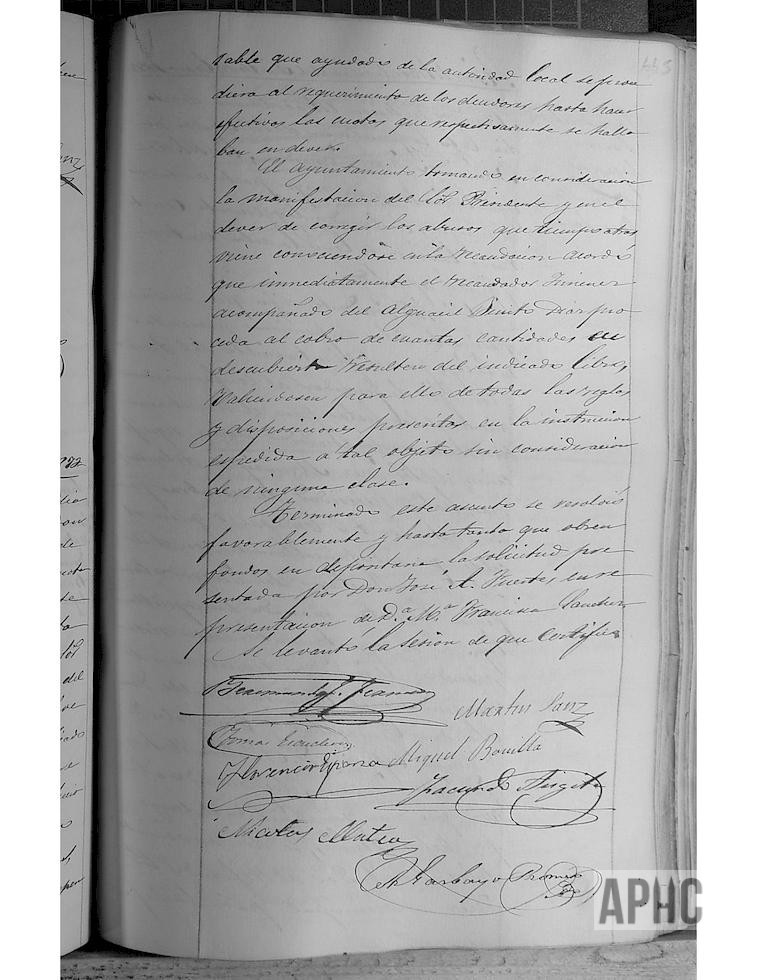 443
sable que ayudado de la autoridad local se proce
diera al requerimiento de los deudores hasta hacer
efectivos las cuotas que respectivamente se halla
ban en dever.
El ayuntamiento tomando en consideracion
la manifestacion del Sor. Presidente y en el
dever de corregir los abusos que tiempo atras
viene consciendose en la recaudacion acordó
que inmediatamente el recaudador Jimenez
acompañado del alguacil Benito Diaz pro
ceda al cobro de cuantas cantidades en
descubierto resulten del indicado libro,
valiendosen para ello de todas las reglas
y disposiciones prescritas en la instruccion
espedida á tal objeto sin consideracion
de ninguna clase.
Terminado este asunto se resolvió
favorablemente y hasta tanto que obren
fondos en depositaria la solicitud pre
sentada por Don José A. Fuertes en re
presentacion de D.a M.a Francisca Sanchez
Se levantó la sesion de que certifico
Martin Sanz
Florencio Esparza Miguel Bonilla
Facundo
Nicolas Mateo
Garbayo
APHC